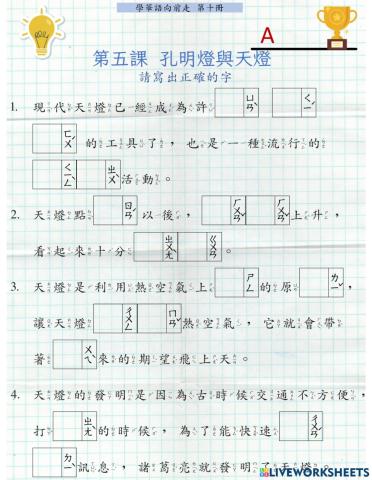 學華語向前走 第十冊
A
第五課 孔明燈與天燈
請寫出正確的字
1. 現代天燈已經成為許 ㄩㄢˋ ㄑㄧˊ
ㄈㄨˊ 的工具了，也是一種流行的
ㄑㄧㄥˋ ㄓㄨˋ 活動。
2. 天燈點 ㄖㄢˊ 以後， ㄏㄨㄢˇ ㄏㄨㄢˇ 上升，
看起來十分 ㄓㄨㄤˋ ㄍㄨㄢ 。
3. 天燈是利用熱空氣上 ㄕㄥ 的原 ㄌㄧˇ ，
讓天燈 ㄔㄨㄥ ㄇㄢˇ 熱空氣，它就會帶
著 ㄨㄟˋ 來的期望飛上天。
4. 天燈的發明是因為古時候交通不方便，
打 ㄓㄤˋ 的時候，為了能快速 ㄔㄨㄢˊ
ㄉㄧˋ 訊息，諸葛亮就發明了天燈。
LIVEWORKSHEETS